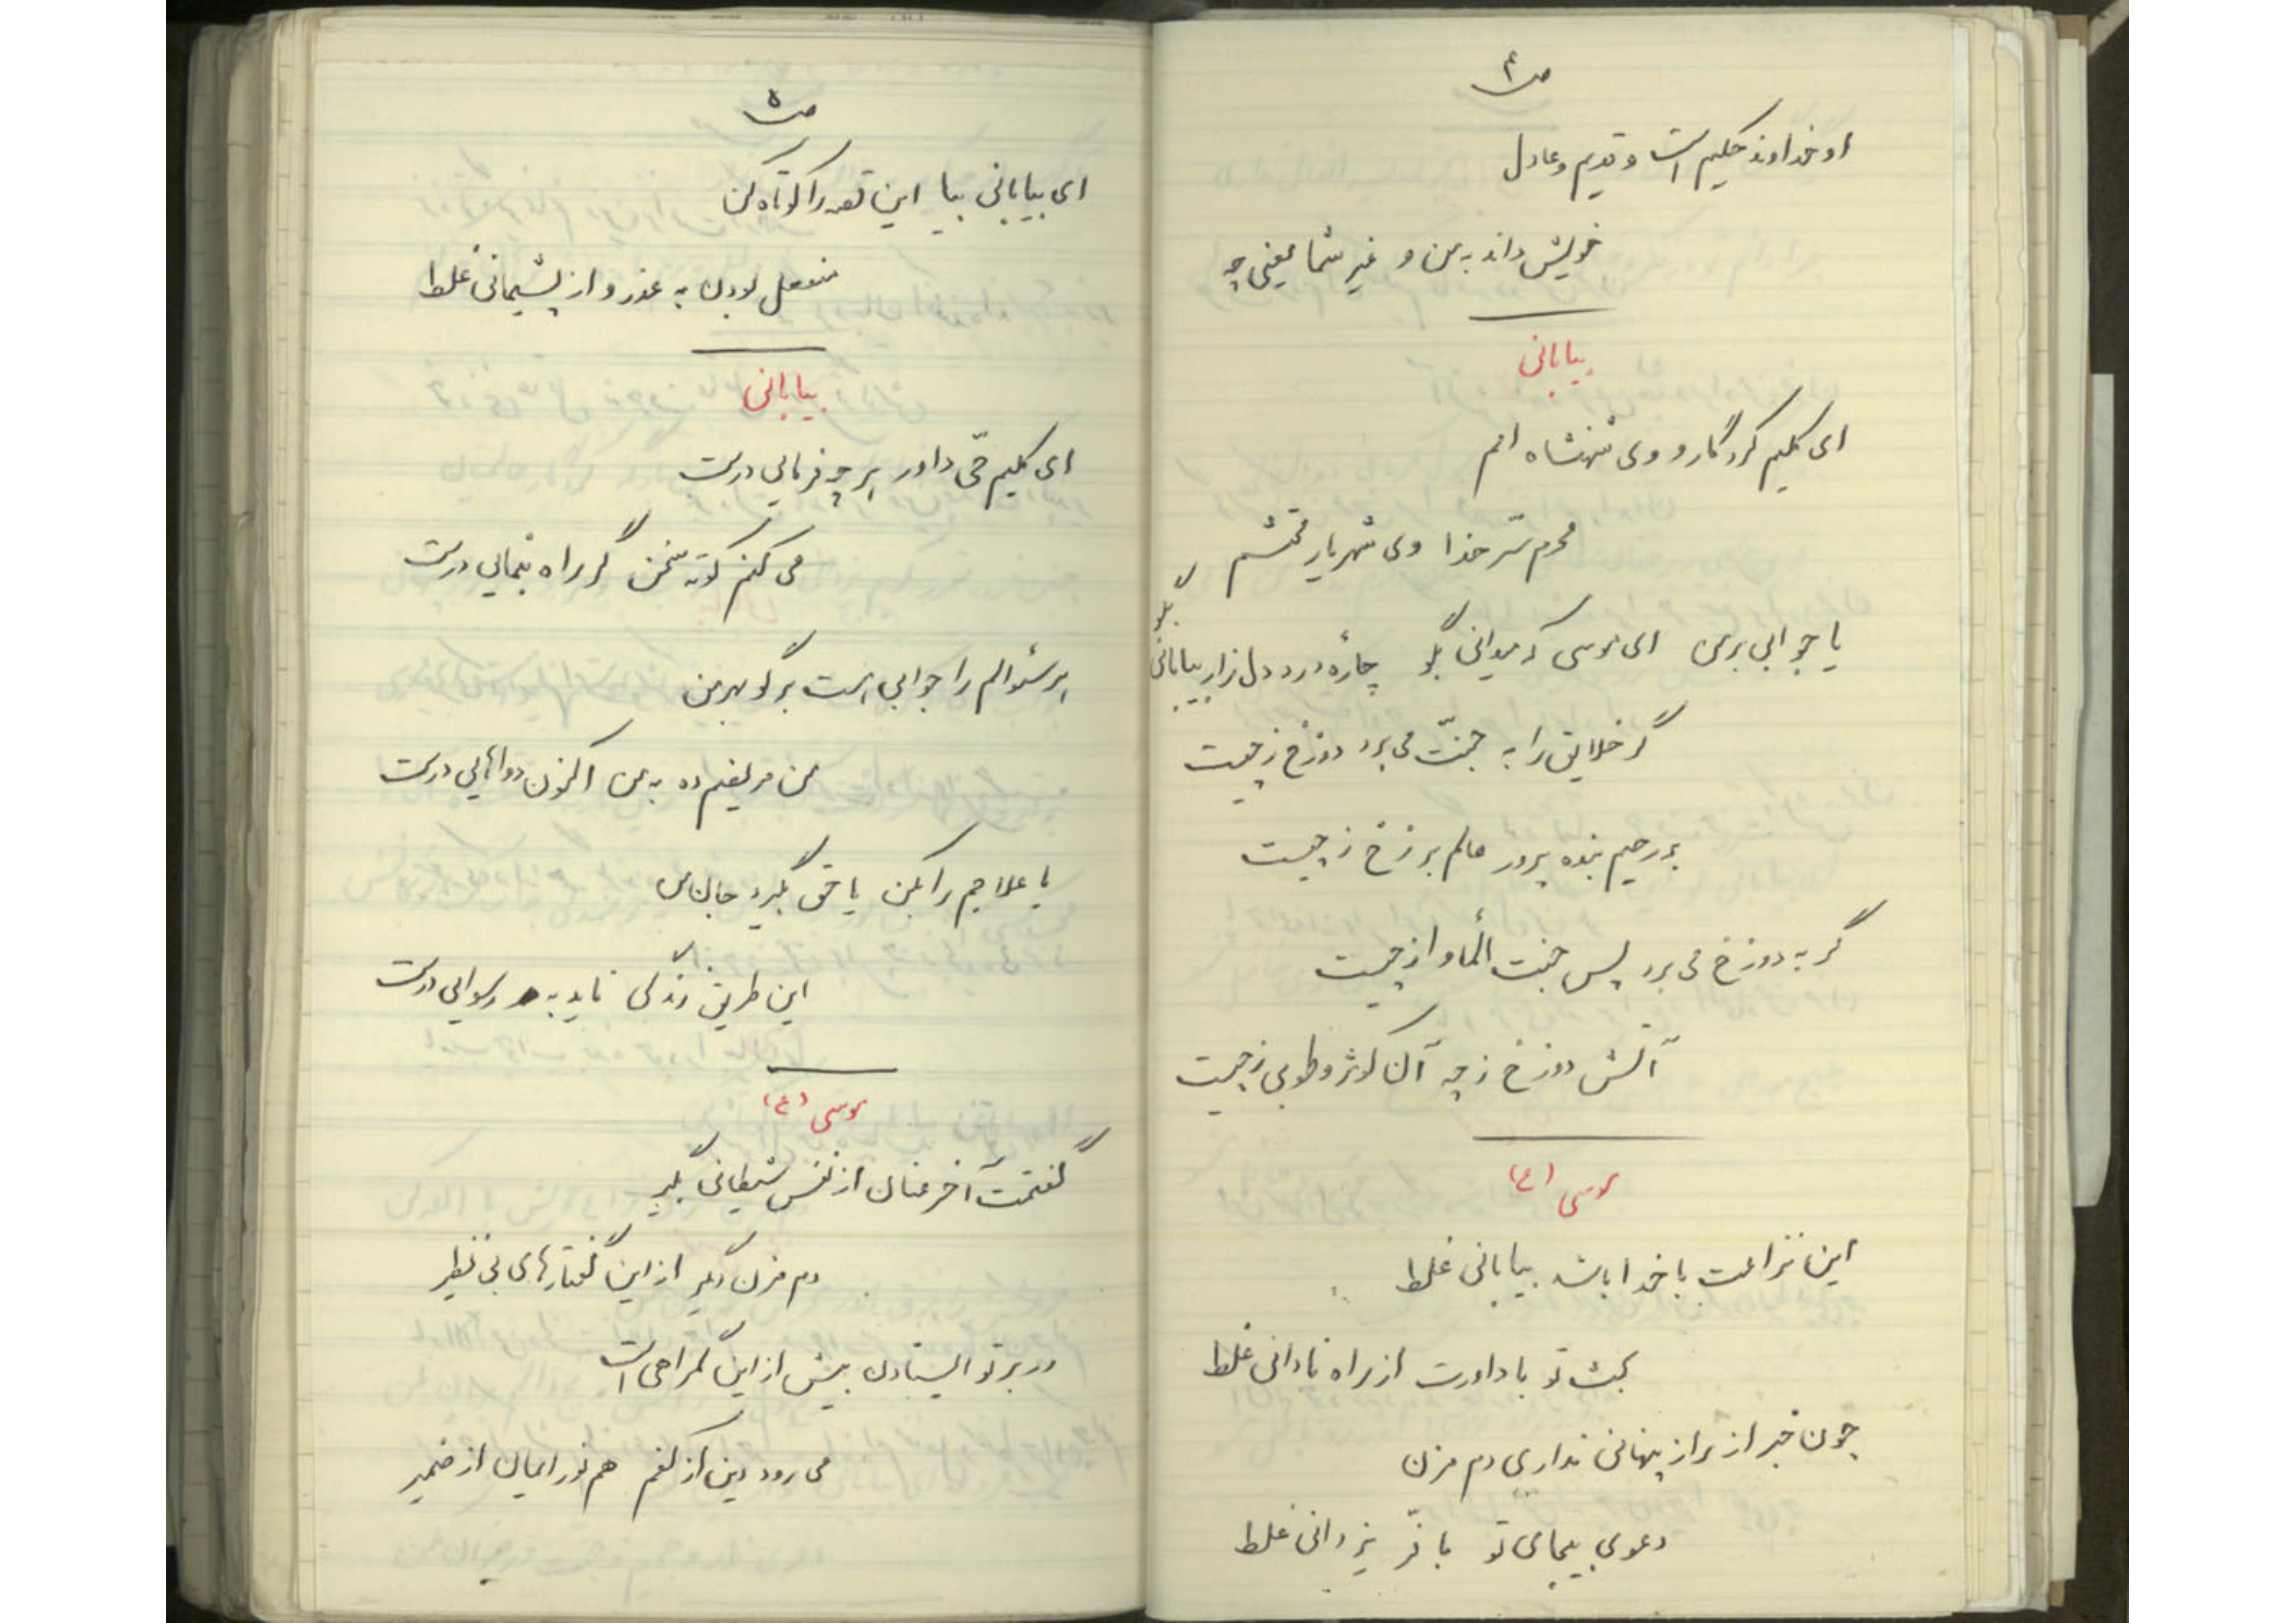 ص۴
او خداوند حکیم است و قدیم و عادل
خویش داند به من و غیر شما یعنی چه
بیابانی
ای کلیم کردگار و وی شهنشاه امم
محرم سرّ خدا وی شهریار محتشم
یا جوابی بر من ای موسی که میدانی بگو چارهٔ درد دل زار بیابانی بگو
گر خلایق را به جنّت می برد دوزخ ز چیست
بر رحیم بنده پرور عالم برزخ ز چیست
گر به دوزخ می برد پس جنت المأوا ز چیست
آتش دوزخ ز چه آن کوثر و طوبی ز چیست
موسی (ع)
این نزاعت با خدا باشد بیابانی غلط
بحث تو با داورت از راه نادانی غلط
چون خبر از راز پنهانی نداری دم مزن
دعوی بیجای تو با فرّ یزدانی غلط
ص۵
ای بیابانی بیا این قصه را کوتاه کن
منفعل بودن به عذر و از پشیمانی غلط
بیابانی
ای کلیم حیّ داور هر چه فرمایی درست
می کنم کوته سخن گر راه بنمایی درست
هر سئوالم را جوابی هست برگو بهر من
من مریضم ده به من اکنون دواهایی درست
یا علاجم را بکن یا حق بگیرد جان من
این طریق زندگی ناید به رسوایی درست
موسی (ع)
گفتمت آخر عنان از نفس شیطانی بگیر
دم مزن دیگر از این گفتارهای بی نظیر
در بر تو ایستادن بیش از این گمراهی است
می رود دین از کفم هم نور ایمان از ضمیر